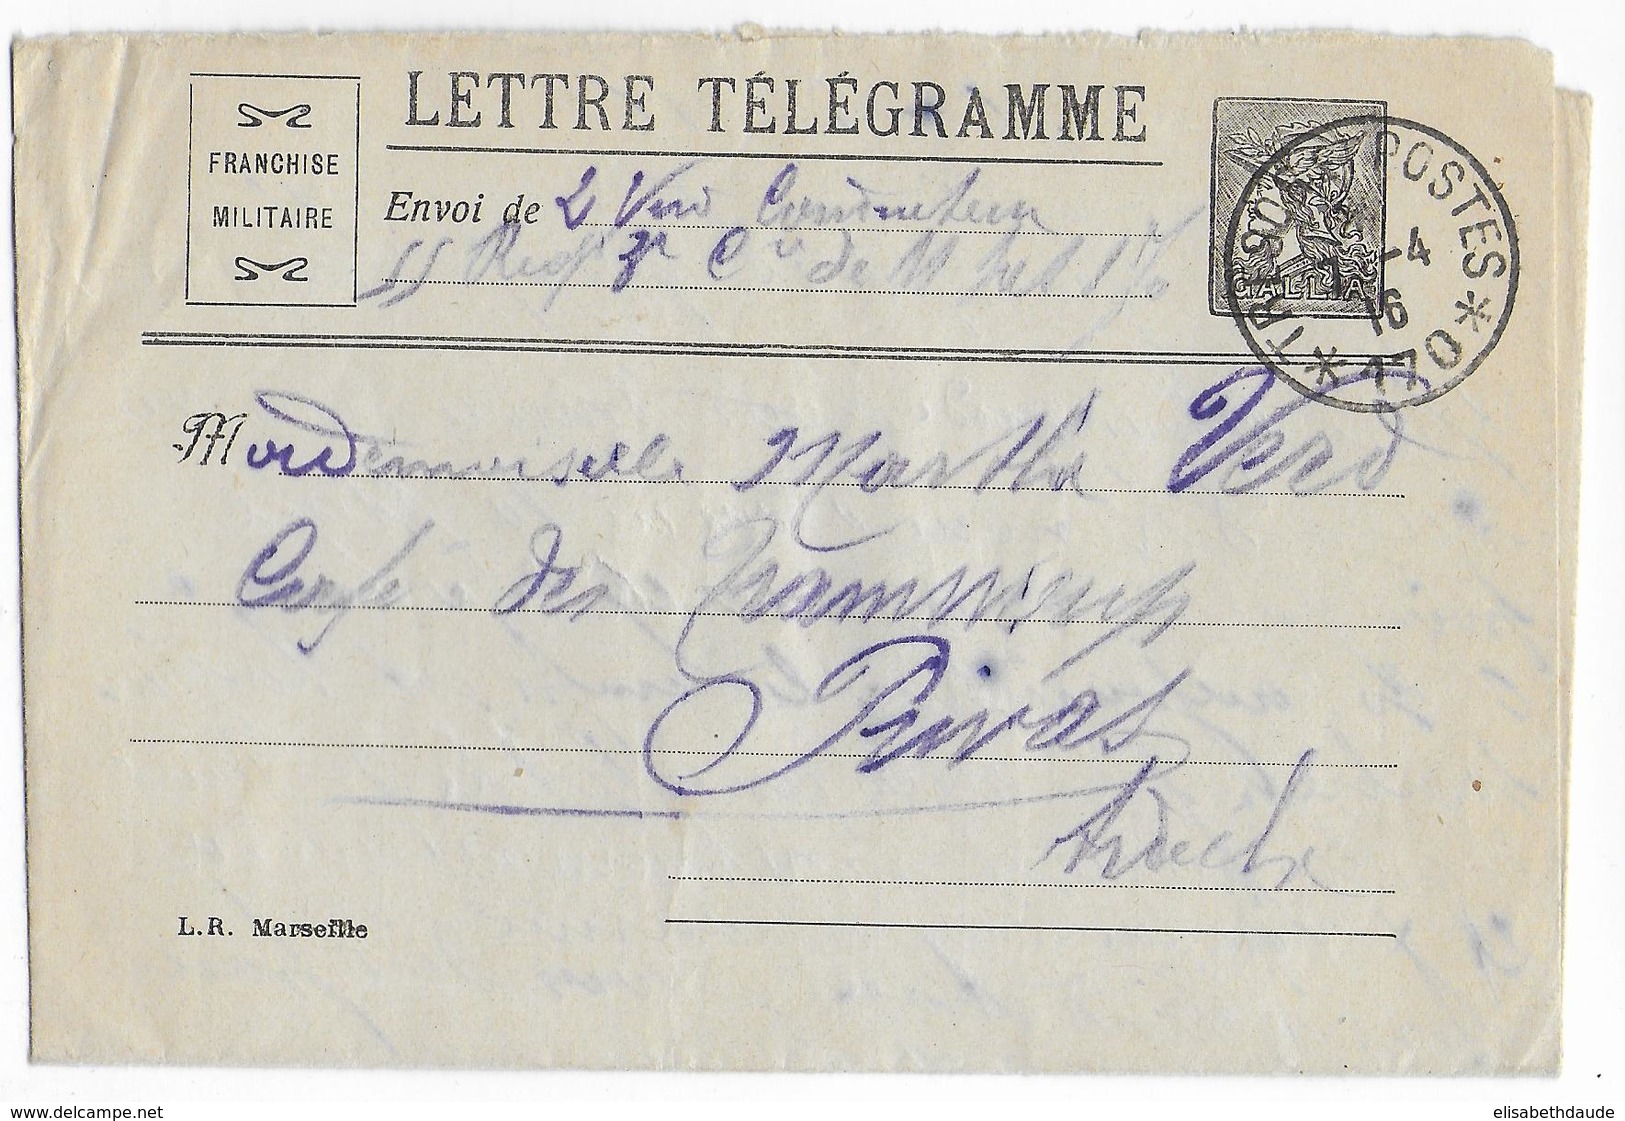 LETTRE TÉLÉGRAMME
FRANCHISE
MILITAIRE
Envoi de L Verd Conducteur
GALLIA
TRESOR ET POSTES
7 -4
16
* 170 *
Mademoiselle Marthe Verd
Café des Tramways
Privas
Ardèche
L.R. Marseille
www.delcampe.net
elisabethdaude